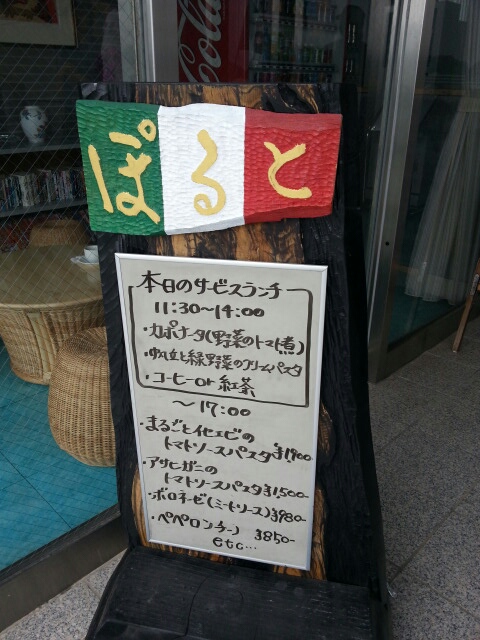 Cola
ぽると
本日のサービスランチ
11:30〜14:00
・カポナータ(野菜のトマト煮)
・帆立と緑野菜のクリームパスタ
・コーヒーor紅茶
〜17:00
・まるごとイセエビの
トマトソースパスタ ¥1,900
・アサヒガニの
トマトソースパスタ ¥1,500-
・ボロネーゼ(ミートソース) ¥980-
・ペペロンチーノ ¥850-
etc…